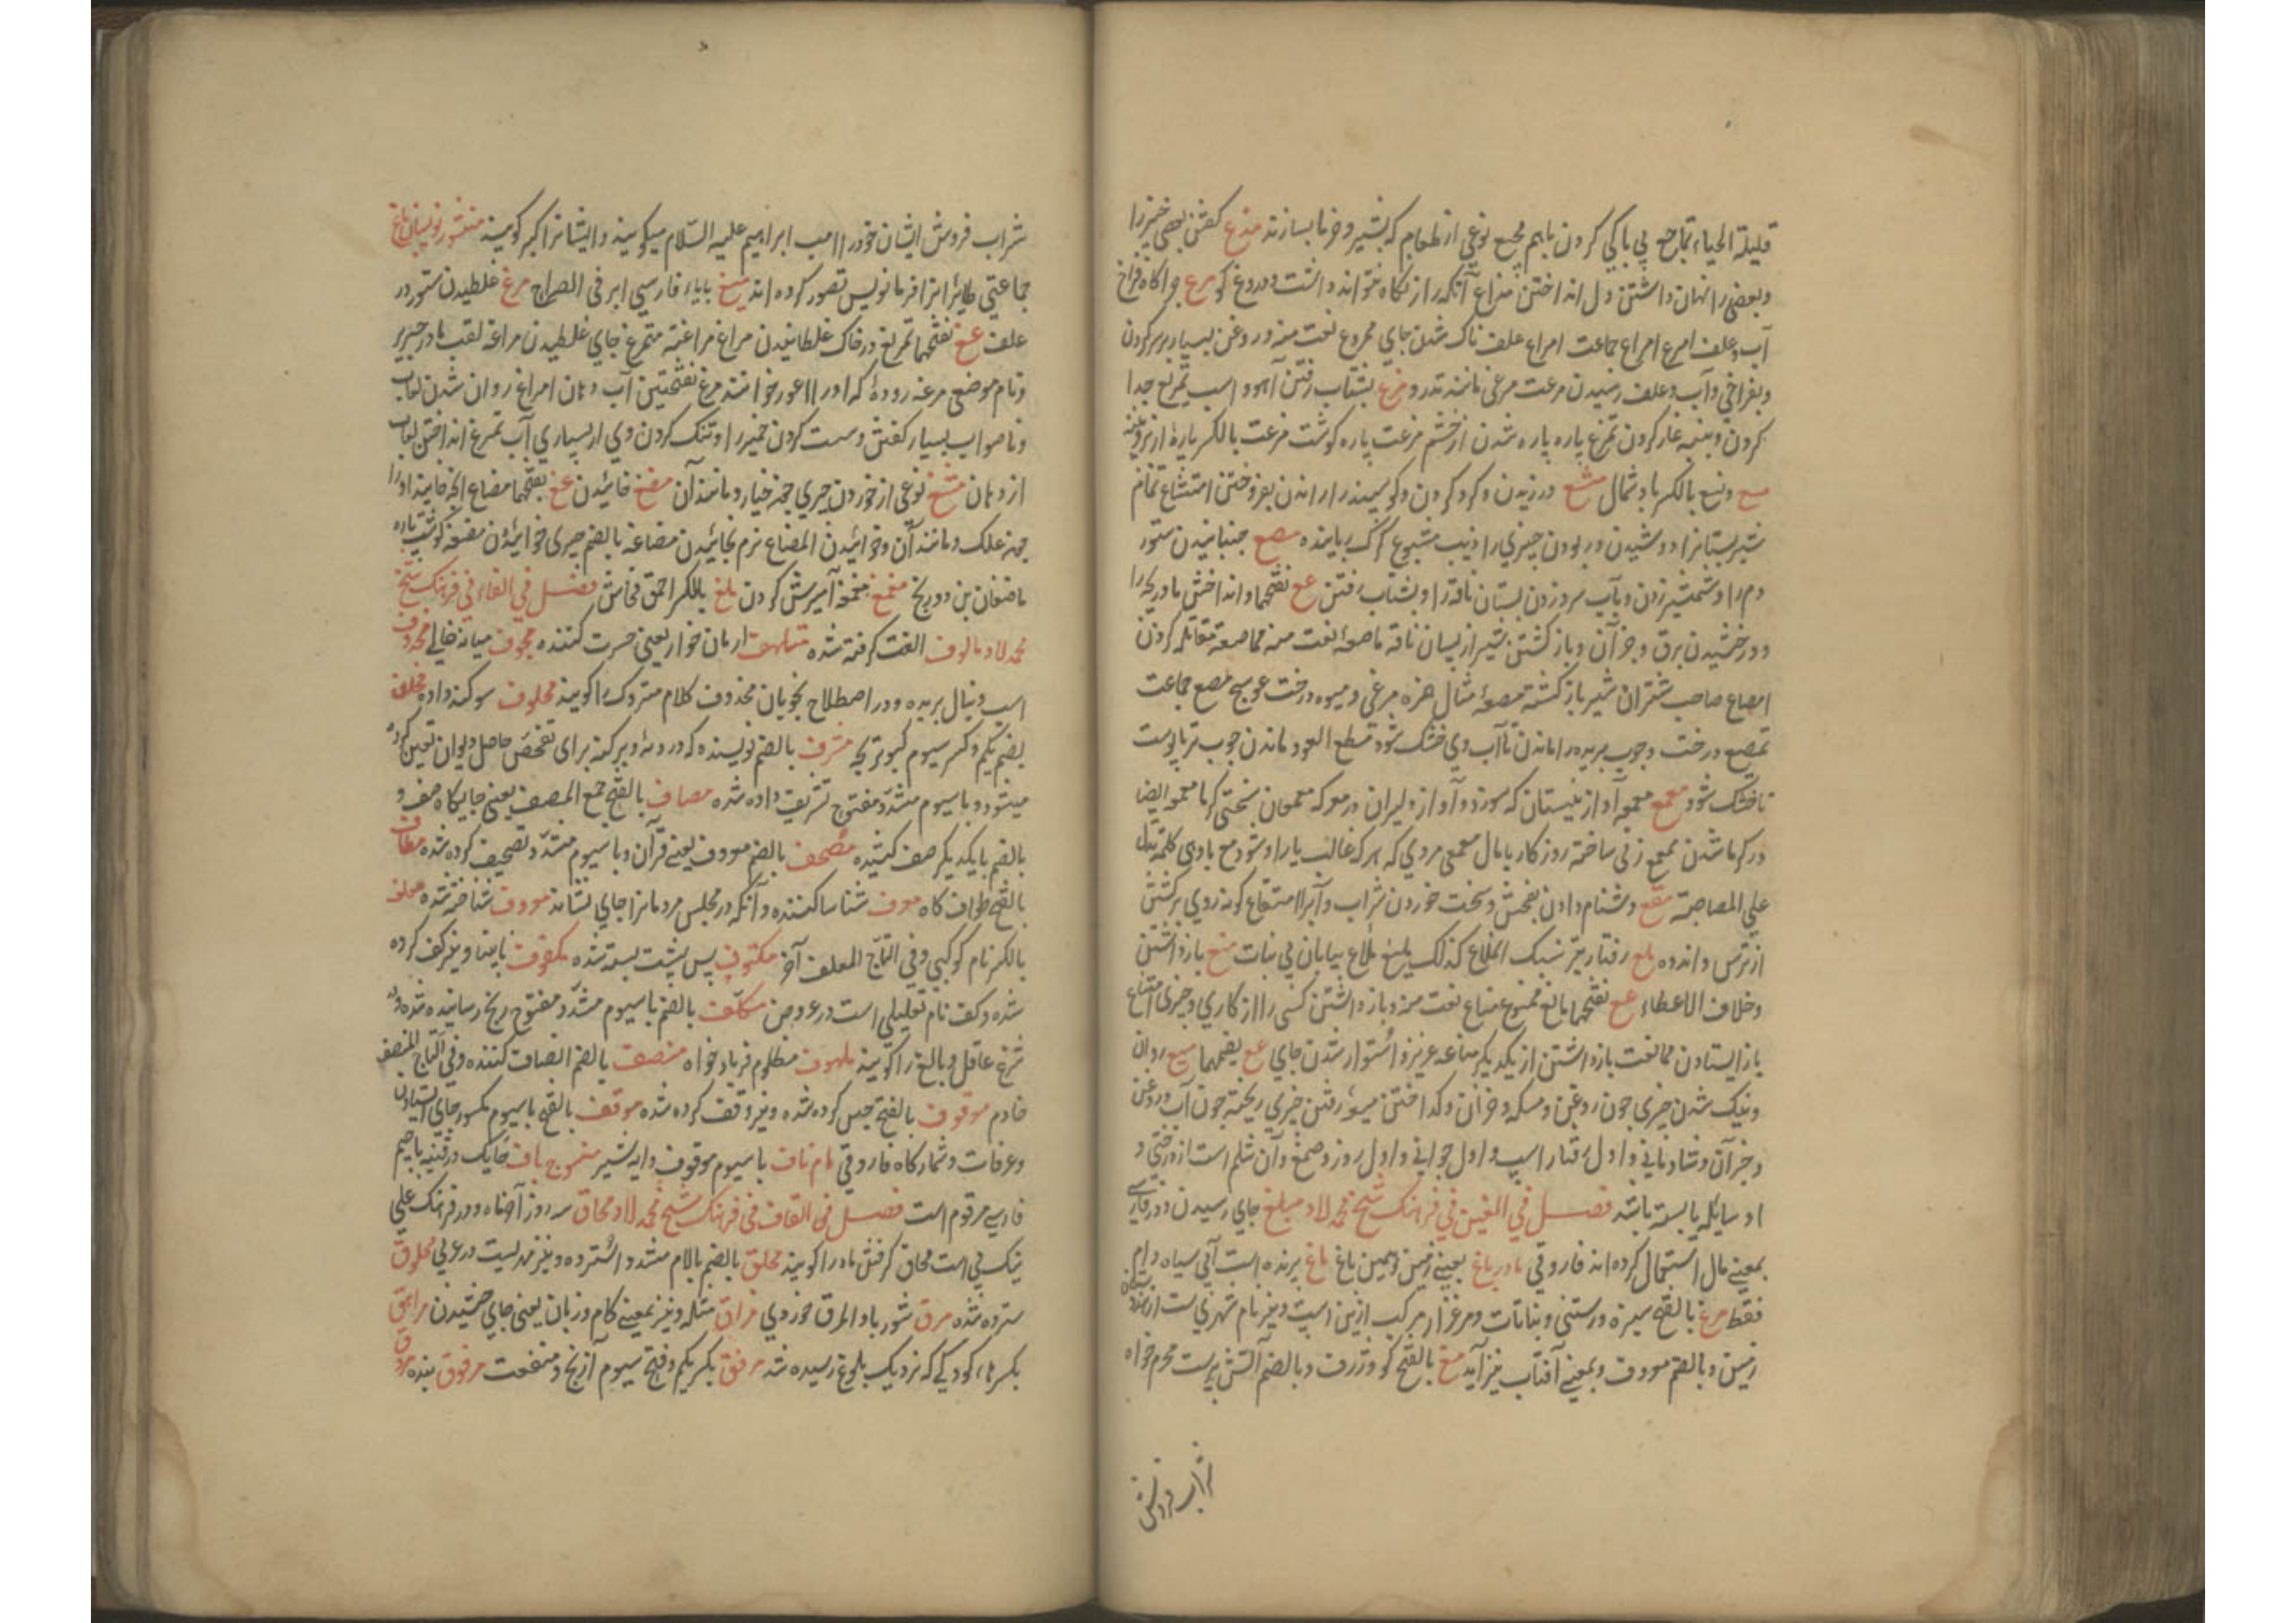 قلیلة الحیاء تماجع بی باکی کردن باهم مجیع نوعی از طعام که بشیر و خرما بسازند مذع کفتن بعضی خبر را
وبعضی را نهان داشتن ول انداختن مذاع آنکه راز نکاه نتواند داشت و دروغ کو مرع چراکاه فراخ
آب وعلف امرع امراع جماعت امراع علف ناک شدن جای ممروع نعت منه و روغن بسیار بر سر کردن
وبفراخی و آب وعلف رسیدن مرعت مرغی مانند تذرو مزع بشتاب رفتن آهو و اسب تمزیع جدا
کردن و پنبه غاز کردن تمزع پاره پاره شدن از خشم مزعت پاره کوشت مزعت بالکسر پارهٔ از
مسع ونسع بالکسر باد شمال مشع ورزیدن و کرد کردن و کوسپند را راندن بفروختن امتشاع تمام
شیر پستان را دوشیدن و ربودن چیزی را ذیب مشوع کرک رباینده مصع جنبانیدن ستور
دم را و شمشیر زدن و بآب سرد زدن پستان ناقه را و بشتاب رفتن مع بفتحها و انداختن مادر بچه را
و درخشیدن برق و جز آن و بازکشتن شیر از پستان ناقه ماصعه نعت منه مماصعة مقاتله کردن
امصاع صاحب شتران شیر بازکشته مصعه مثال همزه مرغی و میوه درخت عوسج مصع جماعت
تمصیع درخت و چوب بریده را ماندن تا آب وی خشک شود مظع العود ماندن چوب تر با پوست
تا خشک شود معمع معمعه آواز نیستان که سوزد و آواز دلیران در معرکه معمعان سختی کرما معمعه ایضا
در کرما شدن معمع زنی ساخته روزکار با مال معمعی مردی که هرکه غالب یار او شود مع با وهی کلمة تدل
علی المصاحبة مقع دشنام دادن بفحش و سخت خوردن شراب و آب را امتقاع کونه روی برکشتن
از ترس و اندوه ملع رفتار تیز سبک امتلاع کذلک یلمع ملاع بیابان بی نبات منع بازداشتن
وخلاف الاعطاء مع بفتحها مانع ممنوع مناع نعت منه و بازداشتن کسی را از کاری و چیزی امتناع
باز ایستادن ممانعت بازداشتن از یکدیکر مناعه عزیز و استوار شدن جای مع بضمها میع روان
و نیک شدن چیزی چون روغن و مسکه و جز آن و کداختن میعه رفتن چیزی ریخته چون آب و روغن
و جز آن و شادمانی و اول رفتار اسپ و اول جوانی و اول روز و صمغ و آن شلم است از درختی و
او سایله یا بسته باشد فصل فی الغین فی فرهنک شیخ محمد لاد مبلغ جای رسیدن و در فارسی
بمعنی مال استعمال کرده اند فاروقی مادر باغ بمعنی زمین و همین باغ ماغ پرنده است آبی سیاه وام
فقط مرغ بالفتح سبزه و رستنی و نباتات و مرغزار مرکب ازین است و نیز نام شهری ست از
زمین و بالضم معروف و بمعنی آفتاب نیز آید مغ بالفتح کو و ژرف و بالضم آتش پرست محرم خواه
شراب فروش
شراب فروش ایشان خود را امت ابراهیم علیه السلام میکویند و ایشانرا کبر کویند منشور نویسان باغ
جماعتی طایرانرا فرمانویس تصور کرده اند میغ بایاء فارسی ابر فی الصراح مرغ غلطیدن ستور در
علف مغ بفتحها تمریغ در خاک غلطانیدن مراغ مراغة متمرغ جای غلطیدن مراغه لقب مادر جریر
و نام موضعی مرغه رودهٔ که او را اعور خوانند مرغ بفتحتین آب دهان امراغ روان شدن لعاب
و ناصواب بسیار کفتن و سست کردن خمیر را و تنک کردن وی از بسیاری آب تمرغ انداختن لعاب
از دهان مشغ نوعی از خوردن چیزی چنه خیار و مانند آن مضغ خائیدن مغ بفتحها مضاغ الخ خایند او را
چنه علک و مانند آن و خوائیدن المضاغ نرم بخائیدن مضاغه بالضم چیزی خوائیدن مضغه کوشت پاره
ماضغان بن دو رخ مغمغ مغمغه آمیزش کردن ملغ بالکسر احمق فحاش فصل فی الفاء فی فرهنک شیخ
محمد لاد مالوف الفت کرفته شده متلهف ارمان خوار یعنی حسرت کننده مجوف میانه خالی محذوف
اسب دنبال بریده و در اصطلاح نحویان محذوف کلام متروک را کویند محلوف سوکند داده مخلف
بضم یکم و کسر سیوم کبوتر بچه مشرف بالضم نویسنده که در دیه و پرکنه برای تفحص حاصل دیوان تعین کرده
میشود و با سیوم مشدد مفتوح تشریف داده شده مصاف بالفتح جمع المصف یعنی جایکاه صف و
بالضم با یکدیکر صف کشیده مصحف بالضم معروف یعنی قرآن و با سیوم مشدد تصحیف کرده شده مطاف
بالفتح طواف کاه معرف شناسا کننده و آنکه در مجلس مردمانرا جای نشاند معروف شناخته شده معلف
بالکسر نام کوکبی و فی التاج المعلف آخر مکتوف پس پشت بسته شده مکفوف نابینا و نیز کف کرده
شده و کف نام تعلیلی است در عروض مکلف بالضم با سیوم مشدد مفتوح رنج رسانیده شده و در
شرع عاقل و بالغ را کویند ملهوف مظلوم فریاد خواه منصف بالضم انصاف کننده و فی التاج المنصف
خادم موقوف بالفتح حبس کرده شده و نیز وقف کرده شده موقف بالفتح با سیوم مکسور جای ایستادن
و عرفات و شمارکاه فاروقی مام ناف با سیوم موقوف دایه شیر منسوج باف حایک در قنیه باجیم
فارسی مرقوم است فصل فی القاف فی فرهنک شیخ محمد لاد محاق سه روز آخر ماه و در فرهنک علی
نیک پی است محاق کرفتن ماه را کویند محلق بالضم با لام مشدد استرده و نیز مهریست در عربی محلوق
سترده شده مرق شوربا و المرق خوردی مزاق مثله و نیز بمعنی کام و زبان یعنی جای چشیدن مراهق
بکسر ها، کودکی که نزدیک بلوغ رسیده شد مرفق بکسر یکم و فتح سیوم آرنج و منفعت مرقوق بنده